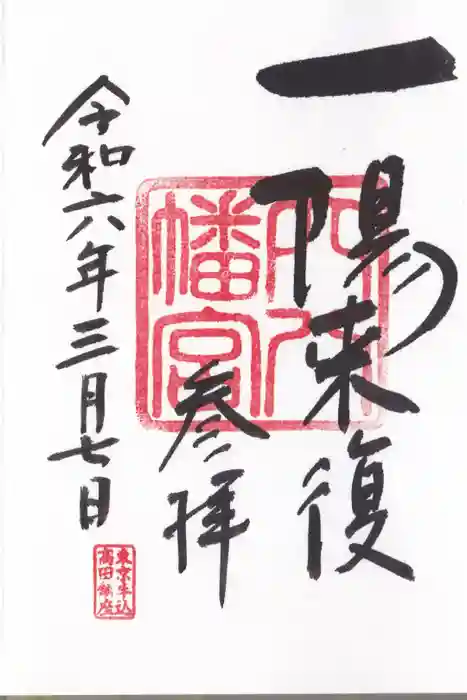 一陽来復
参拝
令和六年三月七日
穴八
幡宮
東京牛込
高田鎮座